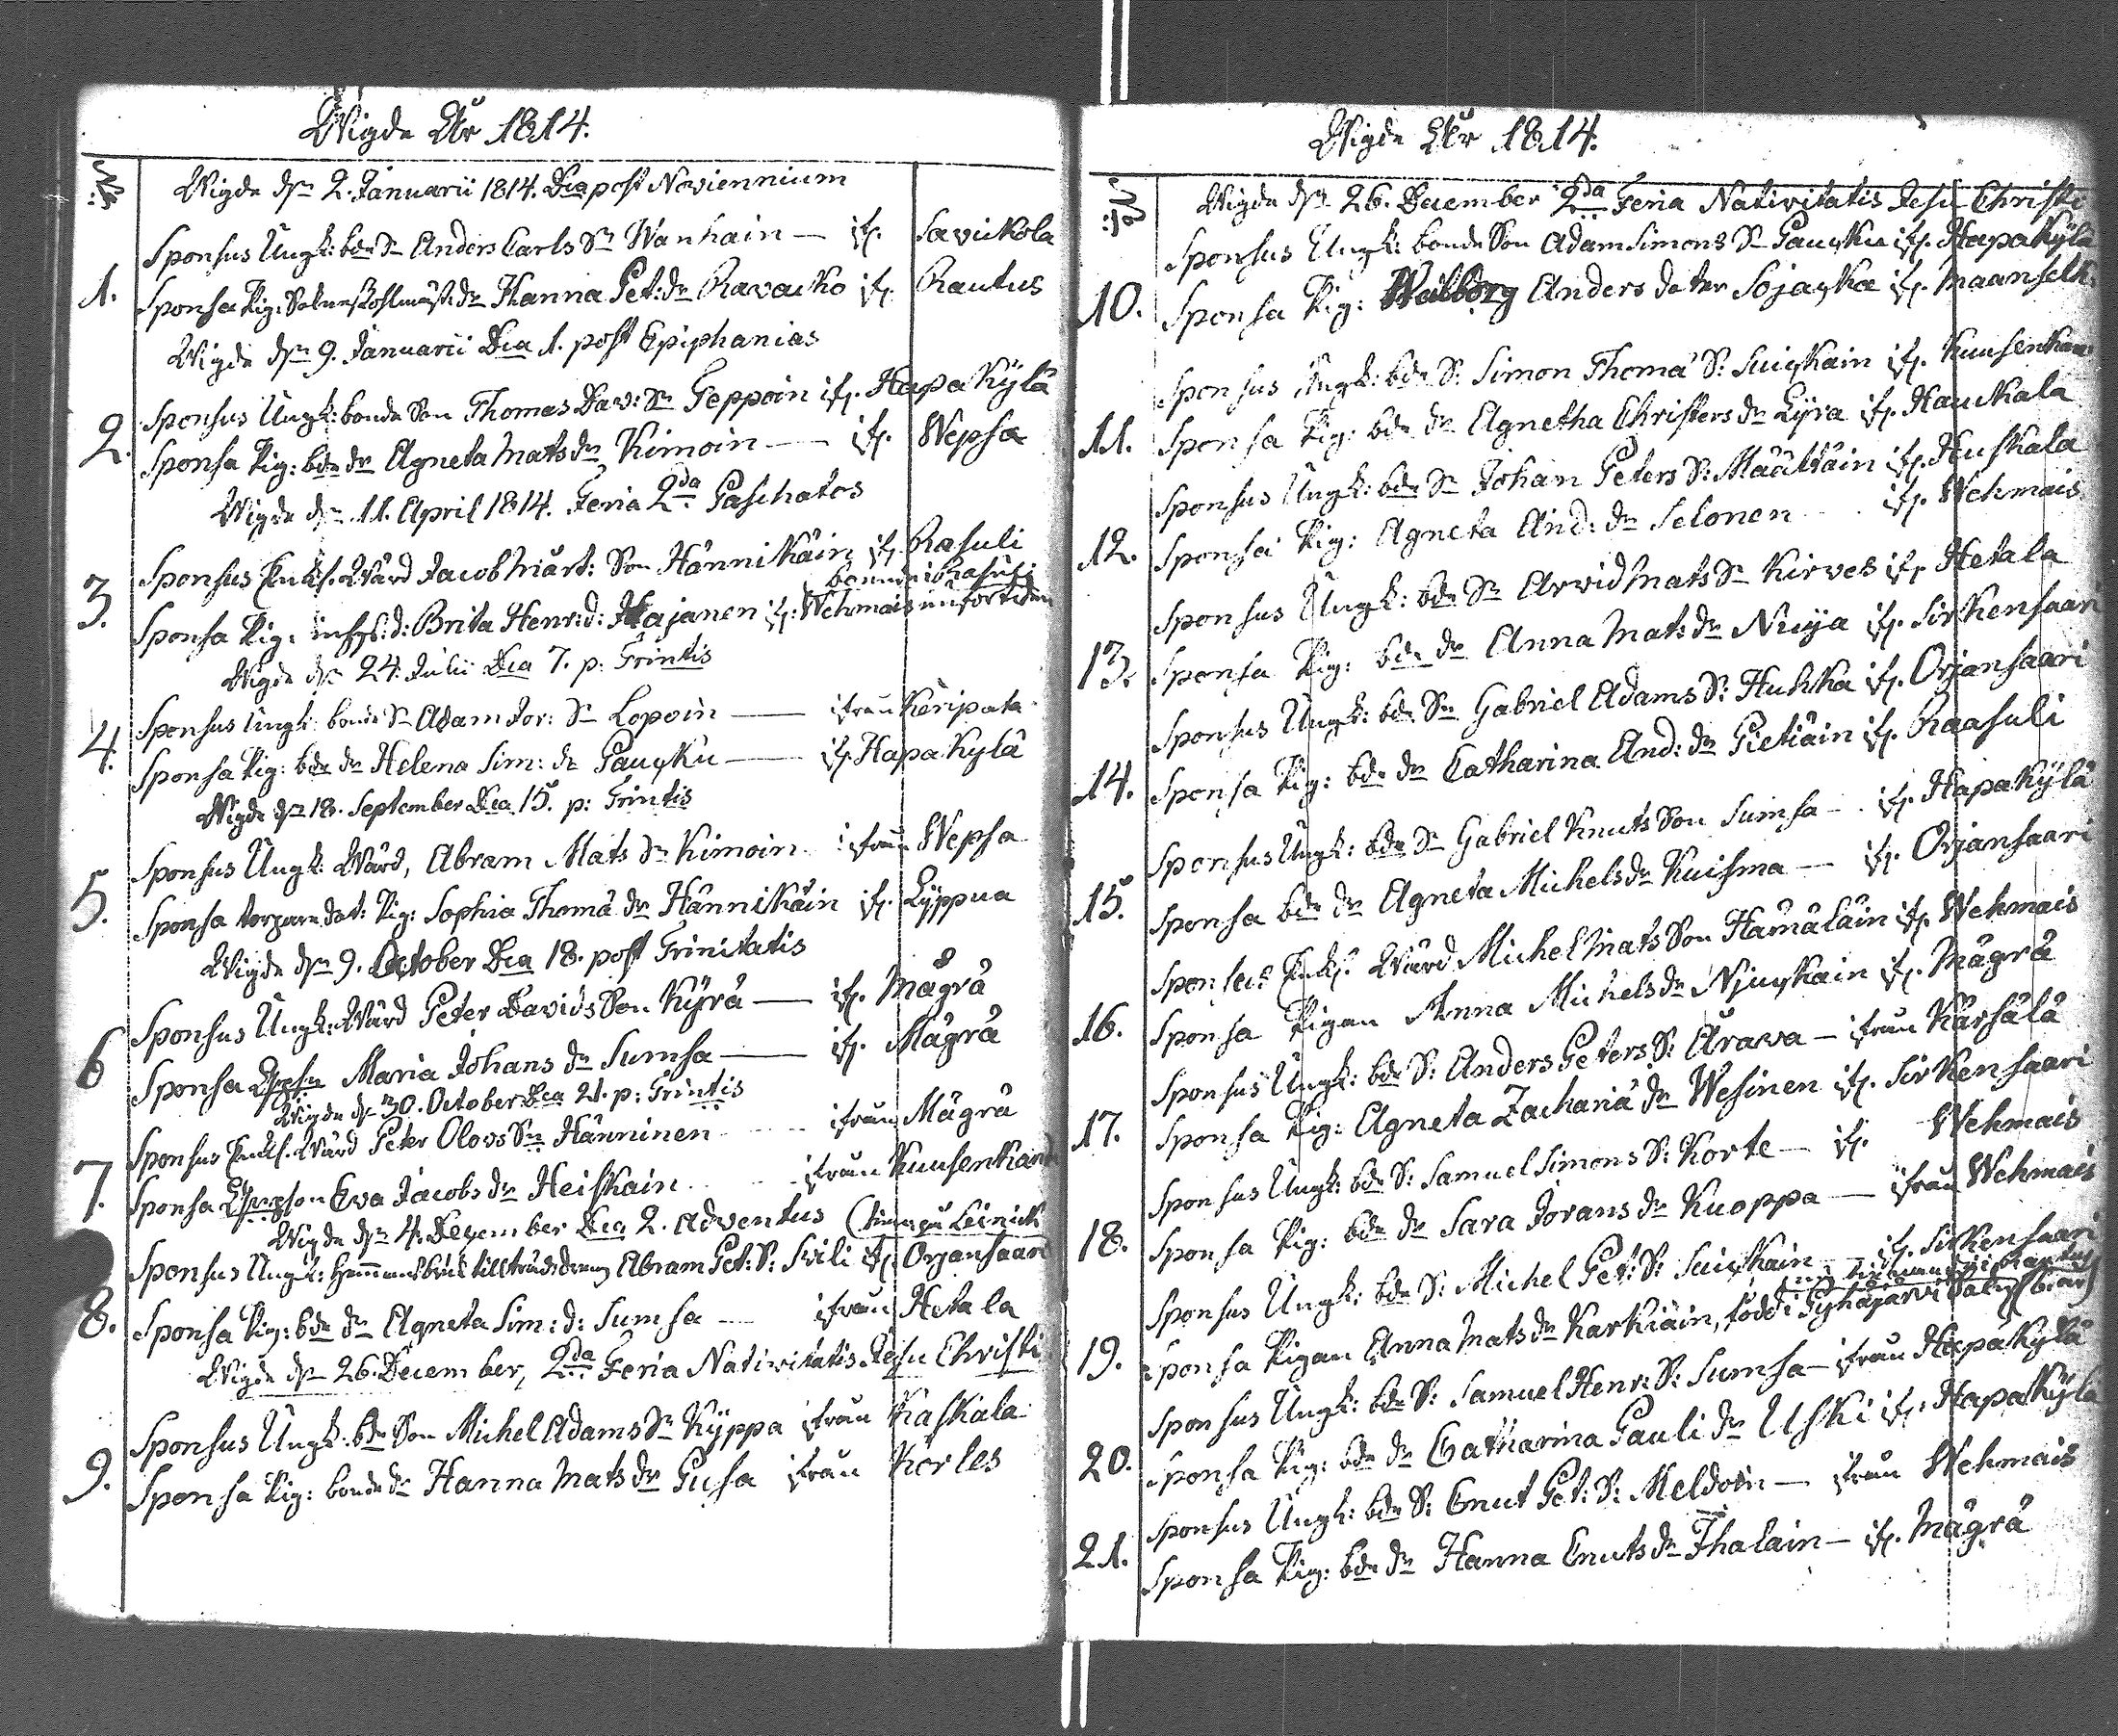 Wigde År 1814.
Wigde dn 2. Januarii 1814. Dca post Noviennium
Sponsus Ungk: bde Sn Anders Carls Sn Wanhain — ifr. Savickola
1. Sponsa Pig: dr Hanna Pet: dr Ravacko ifr. Rautus
Wigde dn 9. Januarii Dca 1. post Epiphanias
Sponsus Ungk: bonde Son Thomas Dav: Sn Teppoin ifr. Hapakylä
2. Sponsa Pig: bde dr Agneta Mats dr Kimoin — ifr. Wepsa
Wigde dn 11. April 1814. Feria 2da Paschatos
Sponsus Enkl. Wärd Jacob Mårt: Son Hännikäin ifr. Rasuli
3. Sponsa Pig: inhys: d: Brita Henr: d: Hajanen ifr: Wehmais
Wigde dn 24. Julii Dca 7. p: Trintis
Sponsus Ungk: bonde Sn Adam Jor: Sn Lopoin — ifrån Keripata
4. Sponsa Pig: bde dr Helena Sim: dr Paucku — ifr. Hapakylä
Wigde dn 18. September Dca 15. p: Trintis
Sponsus Ungk: Wärd, Abram Mats Sn Kimoin ifrån Wepsa
5. Sponsa torpare dot: Pig: Sophia Thomä dr Hännikäin ifr. Lyppua
Wigde dn 9. October Dca 18. post Trinitatis
Sponsus Ungk: Wärd Peter Davids Son Kyrä — ifr. Mägrä
6 Sponsa Maria Johans dr Sumsa — ifr. Mägrä
Wigde dn 30. October Dca 21. p: Trintis
Sponsus Enkl. Wärd Peter Olovs Sn Hänninen ifrån Mägrä
7. Sponsa Eva Jacobs dr Heiskain ifrån Kuusenkand
Wigde dn 4. December Dca 2. Adventus
Sponsus Ungk: Abram Pet: S: Svili ifr. Orjansaari
8. Sponsa Pig: bde dr Agneta Sim: d: Sumsa — ifrån Hetala
Wigde dn 26. December, 2da Feria Nativitatis Jesu Christi
Sponsus Ungk: bde Son Michel Adams Sn Kyppa ifrån Kaskala
9. Sponsa Pig: bonde dr Hanna Mats dr Pusa ifrån Korles
Wigde År 1814.
Wigde dn 26. December 2da Feria Nativitatis Jesu Christi
Sponsus Ungk: bonde Son Adam Simons Sn Paucku ifr. Hapakylä
10. Sponsa Pig: Walborg Anders doter Sojacka ifr. Maanselk
Sponsus Ungk: bde S: Simon Thomä S: Suickain ifr. Kuusenkan
11. Sponsa Pig: bde dr Agnetha Christers dr Lyra ifr. Hauckala
Sponsus Ungk: bde Sn Johan Peters S: Määttäin ifr. Huskala
12. Sponsa Pig: Agneta And: dr Selonen ifr. Wehmais
Sponsus Ungk: bde Sn Arvid Mats Sn Kirves ifr Hetala
13. Sponsa Pig: bde dr Anna Mats dr Nuija ifr. Sirkensaari
Sponsus Ungk: bde Sn Gabriel Adams S: Huhka ifr. Orjansaari
14. Sponsa Pig: bde dr Catharina And: dr Pietiäin ifr. Raasuli
Sponsus Ungk: bde Sn Gabriel Knuts Son Sumsa — ifr. Hapakylä
15. Sponsa bde dr Agneta Michels dr Kuisma — ifr. Orjansaari
Sponsus Enkl. Wärd Michel Mats Son Hämäläin ifr. Wehmais
16. Sponsa Pigan Anna Michels dr Njuckain ifr. Mägrä
Sponsus Ungk: bde S: Anders Peters S: Ärawa — ifrån Kärsälä
17. Sponsa Pig: Agneta Zachariä dr Wesinen ifr. Sirkensaari
Sponsus Ungk: bde S: Samuel Simons S: Korte — ifr. Wehmais
18. Sponsa Pig: bde dr Sara Jörans dr Kuoppa — ifrån Wehmais
Sponsus Ungk: bde S: Michel Pet: S: Suickain — ifr. Sirkensaari
19. Sponsa Pigan Anna Mats dr Karkiäin, född i Pyhäjärvi
Sponsus Ungk: bde S: Samuel Henr: S: Sumsa — ifrån Hapakylä
20. Sponsa Pig: bde dr Catharina Pauli dr Uski ifr. Hapakylä
Sponsus Ungk: bde S: Cnut Pet: S: Meldoin — ifrån Wehmais
21. Sponsa Pig: bde dr Hanna Cnuts dr Ihalain — ifr. Mägrä